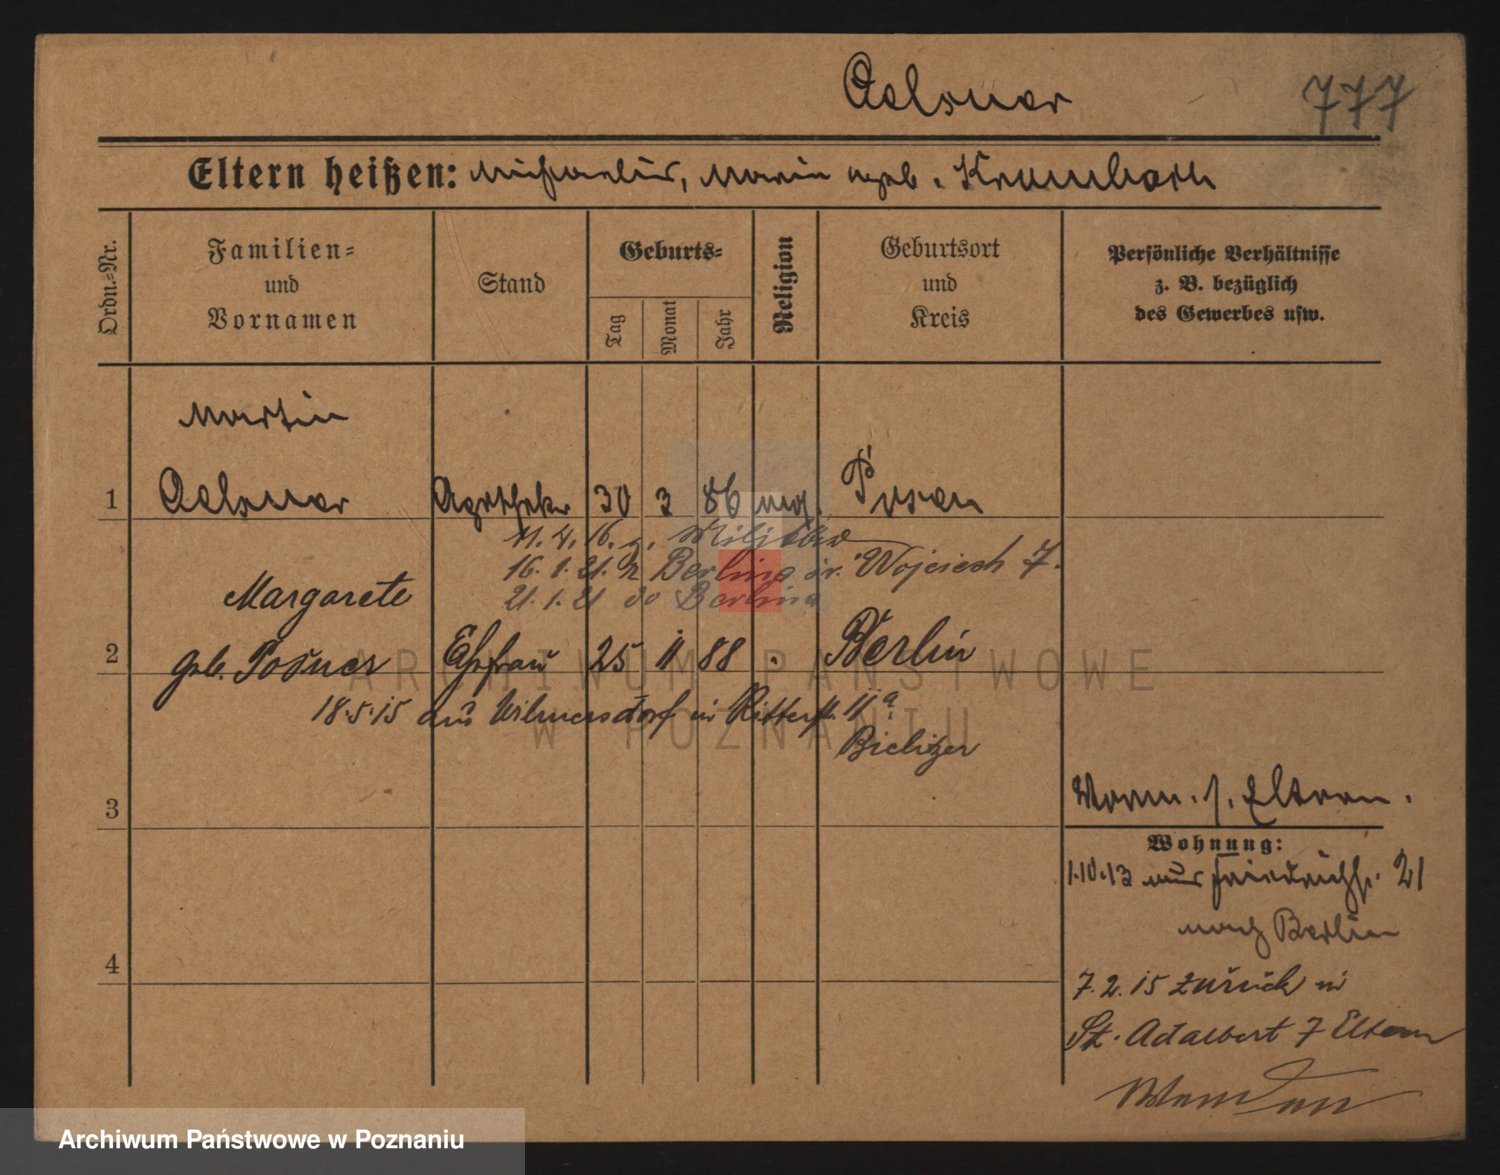 Oelsner 777
Eltern heißen: Michaelis, Marie geb. Krombach
Ordn.-Nr.
Familien-
und
Vornamen
Stand
Geburts-
Tag
Monat
Jahr
Religion
Geburtsort
und
Kreis
Persönliche Verhältnisse
z. B. bezüglich
des Gewerbes usw.
Martin
1 Oelsner Apotheker 30 3 86 Posen
11. 4. 16. z. Militär
16. 1. 21. z Berlina św. Wojciech 7.
21. 1. 21 do Berlina
Margarete
2 geb. Posner Ehefrau 25 11 88 Berlin
18.5.15 aus Wilmersdorf in Ritterstr. 11a
Bielitzer
3
Vorm. s. Eltern.
Wohnung:
1.10.13 aus Friedrichstr. 21
nach Berlin
4
7. 2. 15 zurück in
St. Adalbert 7 Eltern
ARCHIWUM PAŃSTWOWE
W POZNANIU
Archiwum Państwowe w Poznaniu